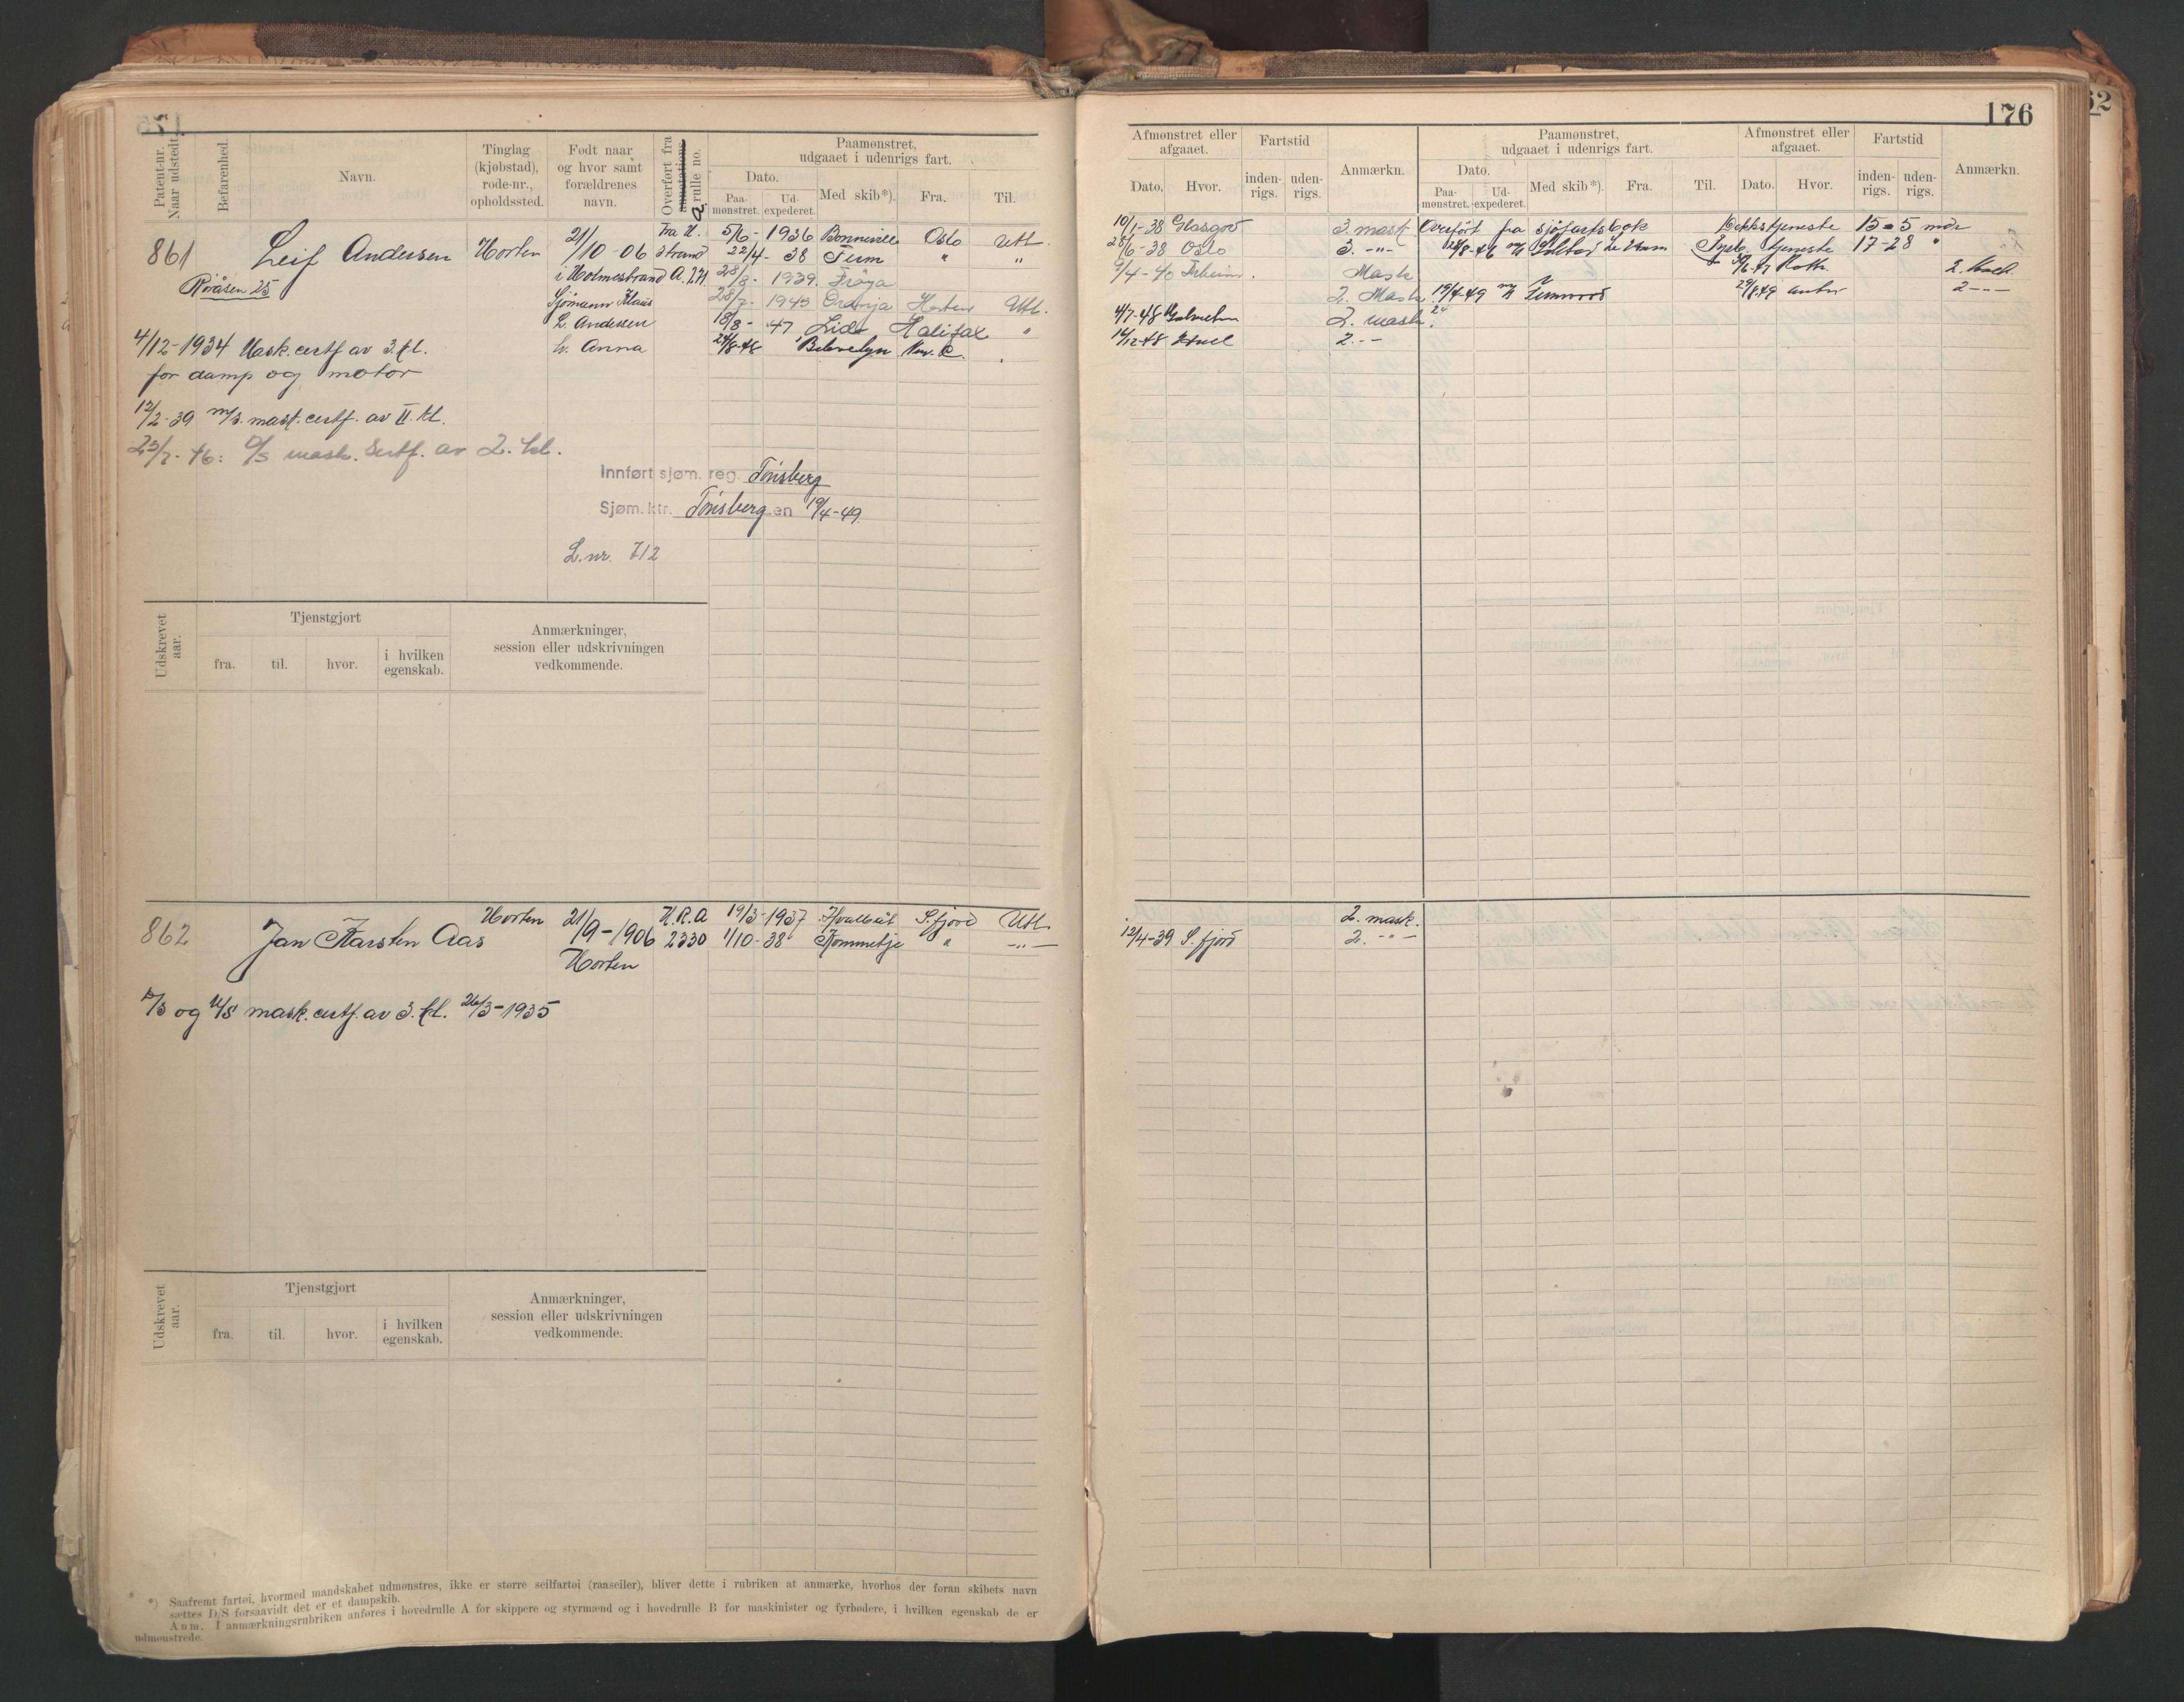 176
62
Patent-nr. Naar udstedt.
Befarenhed.
Navn.
Tinglag (kjøbstad), rode-nr., opholdssted.
Født naar og hvor samt forældrenes navn.
Overført fra annotations rulle no.
Paamønstret, udgaaet i udenrigs fart.
Dato.
Paa-mønstret.
Ud-expederet.
Med skib*).
Fra.
Til.
Afmønstret eller afgaaet.
Dato.
Hvor.
Fartstid
inden-rigs.
uden-rigs.
Anmærkn.
Paamønstret, udgaaet i udenrigs fart.
Dato.
Paa-mønstret.
Ud-expederet.
Med skib*).
Fra.
Til.
Afmønstret eller afgaaet.
Dato.
Hvor.
Fartstid
inden-rigs.
uden-rigs.
Anmærkn.
861 Leif Andersen Horten 21/10-06
Råsen 25
i Holmestrand
Sjømann Klaus
L. Andersen
h. Anna
Fra H.strand A. 271
5/6- 1936 Bonneville Oslo Utl.
22/4- 38 Tum " "
28/8- 1939. Frøya
28/7- 1945 Oranja Horten Utl.
18/8- 47 Lido Halifax "
24/8-48 Belevelyn New. C.
10/1-38 Glasgow 3. mask
28/6-38 Oslo 3. -"-
9/4-40 Mask
2. Mask.
4/7-48 2. mask.
14/12-48 Hull 2. - -
Overført fra sjøfartsbok Dekkstjeneste 15 = 5 mdr
12/8-46 M/ tjeneste 17-28 "
30/6-47 Roth. 2. Mask.
19/4-49 M/ Fernwood 29/8-49 Antw 2 -"-
4/12-1934 Mask.certf av 3.kl.
for damp og motor
12/2-39 m/s. mask.certf. av II kl.
25/7-46: D/S mask. Sertf. av 2. kl.
Innført sjøm. reg. Tønsberg
Sjøm.ktr. Tønsberg en 19/4-49.
L.nr. 712
Udskrevet aar.
Tjenstgjort
fra.
til.
hvor.
i hvilken egenskab.
Anmærkninger, session eller udskrivningen vedkommende.
862 Jan Karsten Aas Horten 21/9-1906 Horten
H.R.A 2330
19/3-1937 Hvalbåt S.fjord Utl.
1/10-38 Kommetje " -"-
2. mask.
12/4-39 S. fjord 2. -"-
D/S og M/S mask.certf. av 3. kl. 26/3-1935
Udskrevet aar.
Tjenstgjort
fra.
til.
hvor.
i hvilken egenskab.
Anmærkninger, session eller udskrivningen vedkommende.
*) Saafremt fartøi, hvormed mandskabet udmønstres, ikke er større seilfartøi (raaseiler), bliver dette i rubriken at anmærke, hvorhos der foran skibets navn
sættes D/S forsaavidt det er et dampskib.
Anm. I anmærkningsrubriken anføres i hovedrulle A for skippere og styrmænd og i hovedrulle B for maskinister og fyrbødere, i hvilken egenskab de er
udmønstrede.